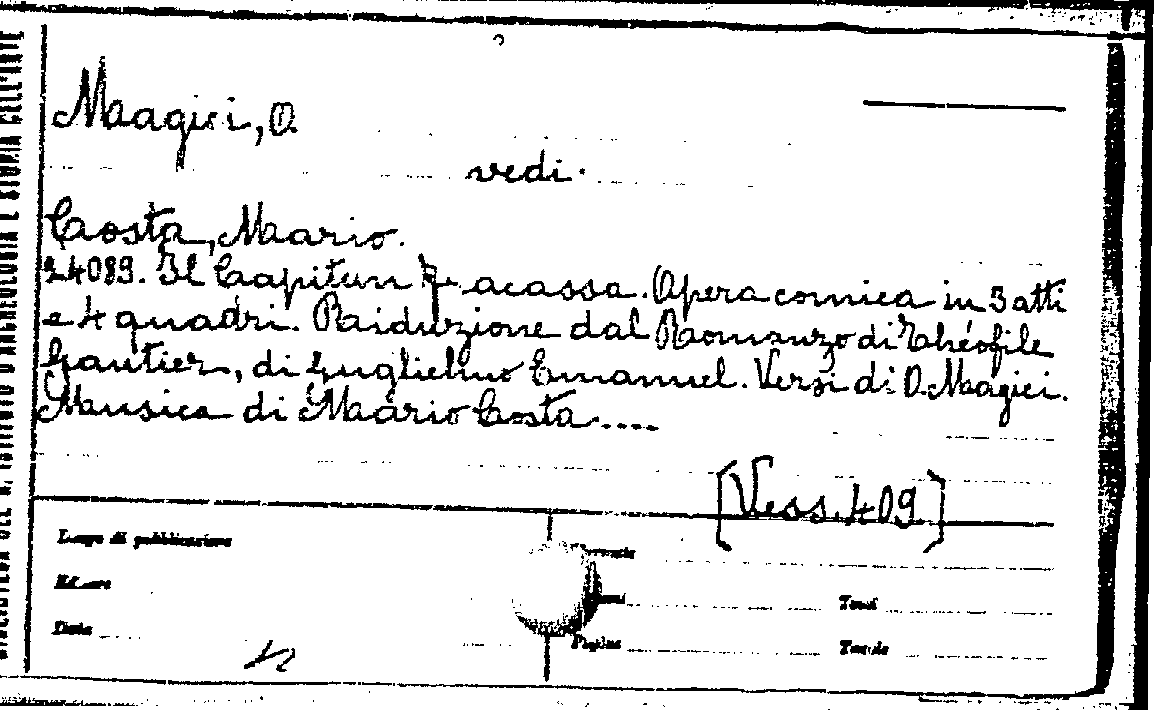 Magici, O.
vedi.
Costa, Mario.
24089. Il Capitan Fracassa. Opera comica in 3 atti
e 4 quadri. Riduzione dal Romanzo di Théofile
Gautier, di Guglielmo Emanuel. Versi di O. Magici.
Musica di Mario Costa.....
[Vess. 409]
Luogo di pubblicazione
Editore
Data
Formato
Tomi
Pagine
Tavole
BIBLIOTECA DEL R. ISTITUTO D'ARCHEOLOGIA E STORIA DELL'ARTE